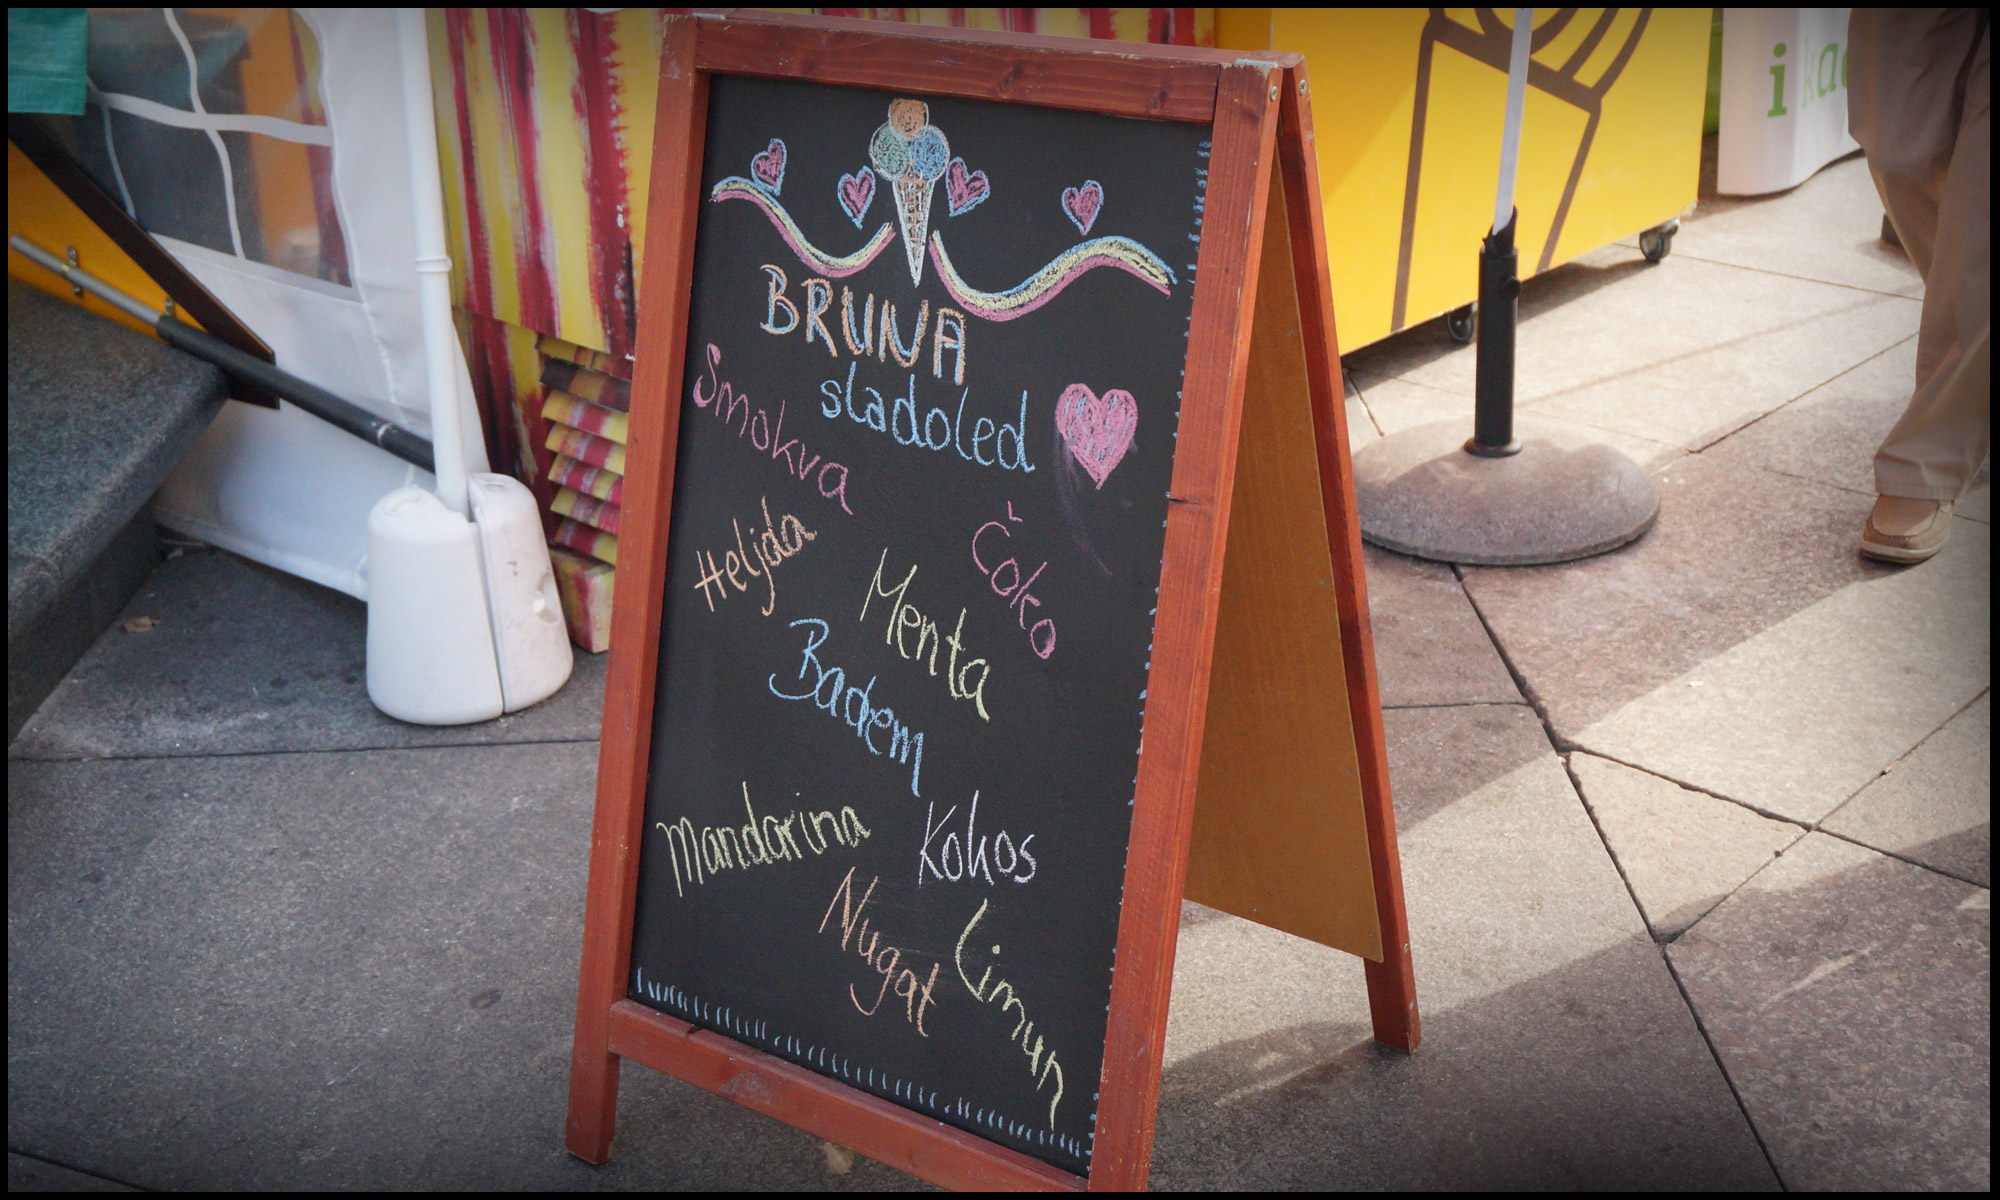 BRUNA
sladoled
Smokva
Heljda
Čoko
Menta
Badem
Mandarina
Kokos
Nugat
Limun
i